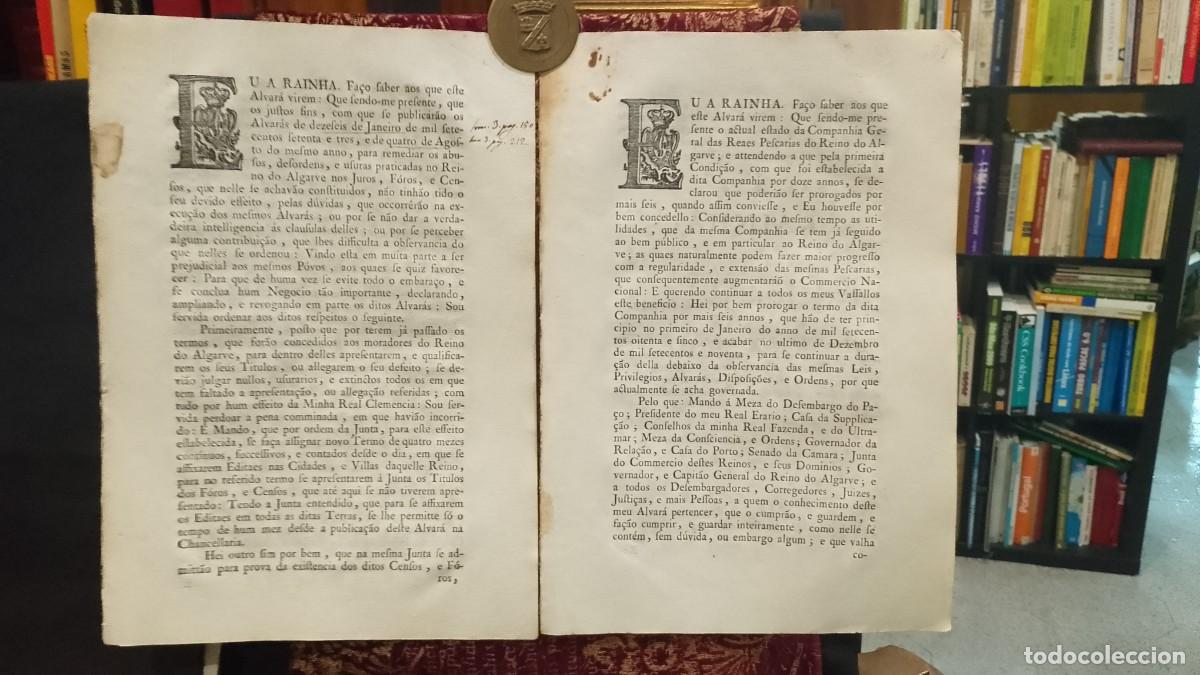 EU A RAINHA. Faço ſaber aos que eſte
Alvará virem: Que ſendo-me preſente, que
os juſtos fins, com que ſe publicarão os
Alvarás de dezeſeis de Janeiro de mil ſete-
centos ſetenta e tres, e de quatro de Agoſ-
to do meſmo anno, para remediar os abu-
ſos, deſordens, e uſuras praticadas no Rei-
no do Algarve nos Juros, Fóros, e Cen-
ſos, que nelle ſe achavão conſtituidos, não tinhão tido o
ſeu devido effeito, pelas dúvidas, que occorrêrão na ex-
ecução dos meſmos Alvarás; ou por ſe não dar a verda-
deira intelligencia ás clauſulas delles; ou por ſe perceber
alguma contribuição, que lhes difficulta a obſervancia do
que nelles ſe ordenou: Vindo eſta em muita parte a ſer
prejudicial aos meſmos Póvos, aos quaes ſe quiz favore-
cer: Para que de huma vez ſe evite todo o embaraço, e
ſe conclua hum Negocio tão importante, declarando,
ampliando, e revogando em parte os ditos Alvarás: Sou
ſervida ordenar aos ditos reſpeitos o ſeguinte.
Primeiramente, poſto que por terem já paſſado os
termos, que forão concedidos aos moradores do Reino
do Algarve, para dentro delles apreſentarem, e qualifica-
rem os ſeus Titulos, ou allegarem o ſeu defeito; ſe de-
vião julgar nullos, uſurarios, e extinctos todos os em que
tem faltado a apreſentação, ou allegação referidas; com
tudo por hum effeito da Minha Real Clemencia: Sou ſer-
vida perdoar a pena comminada, em que havião incorri-
do: E Mando, que por ordem da Junta, para eſte effeito
eſtabelecida, ſe faça aſſignar novo Termo de quatro mezes
contínuos, ſucceſſivos, e contados deſde o dia, em que ſe
affixarem Editaes nas Cidades, e Villas daquelle Reino,
para no referido termo ſe apreſentarem á Junta os Titulos
dos Fóros, e Cenſos, que até aqui ſe não tiverem apre-
ſentado: Tendo a Junta entendido, que para ſe affixarem
os Editaes em todas as ditas Terras, ſe lhe permitte ſó o
tempo de hum mez deſde a publicação deſte Alvará na
Chancellaria.
Hei outro ſim por bem, que na meſma Junta ſe ad-
mittão para prova da exiſtencia dos ditos Cenſos, e Fó-
ros,
EU A RAINHA. Faço ſaber aos que
eſte Alvará virem: Que ſendo-me pre-
ſente o actual eſtado da Companhia Ge-
ral das Reaes Peſcarias do Reino do Al-
garve; e attendendo a que pela primeira
Condição, com que foi eſtabelecida a
dita Companhia por doze annos, ſe de-
clarou que poderião ſer prorogados por
mais ſeis, quando aſſim convieſſe, e Eu houveſſe por
bem concedello: Conſiderando ao meſmo tempo as uti-
lidades, que da meſma Companhia ſe tem já ſeguido
ao bem público, e em particular ao Reino do Algar-
ve; as quaes naturalmente podem fazer maior progreſſo
com a regularidade, e extensão das meſmas Peſcarias,
que conſequentemente augmentaráõ o Commercio Na-
cional: E querendo continuar a todos os meus Vaſſallos
eſte beneficio: Hei por bem prorogar o termo da dita
Companhia por mais ſeis annos, que hão de ter prin-
cipio no primeiro de Janeiro do anno de mil ſetecen-
tos oitenta e ſinco, e acabar no ultimo de Dezembro
de mil ſetecentos e noventa, para ſe continuar a dura-
ção della debaixo da obſervancia das meſmas Leis,
Privilegios, Alvarás, Diſpoſições, e Ordens, por que
actualmente ſe acha governada.
Pelo que: Mando á Meza do Deſembargo do Pa-
ço; Preſidente do meu Real Erario; Caſa da Supplica-
ção; Conſelhos da minha Real Fazenda, e do Ultra-
mar; Meza da Conſciencia, e Ordens; Governador da
Relação, e Caſa do Porto; Senado da Camara; Junta
do Commercio deſtes Reinos, e ſeus Dominios; Go-
vernador, e Capitão General do Reino do Algarve; e
a todos os Deſembargadores, Corregedores, Juizes,
Juſtiças, e mais Peſſoas, a quem o conhecimento deſte
meu Alvará pertencer, que o cumprão, e guardem, e
fação cumprir, e guardar inteiramente, como nelle ſe
contém, ſem dúvida, ou embargo algum; e que valha
co-
CSS Cookbook
TURBO PASCAL 6.0
Portugal
todocoleccion